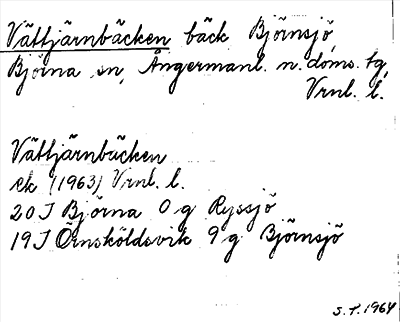 Vättjärnbäcken bäck Björnsjö,
Björna sn, Ångermanl. n. doms. tg,
Vrnl. l.
Vättjärnbäcken
ek (1963) Vrnl. l.
20 I Björna 0 g Ryssjö
19 I Örnsköldsvik 9 g Björnsjö
S.T. 1964